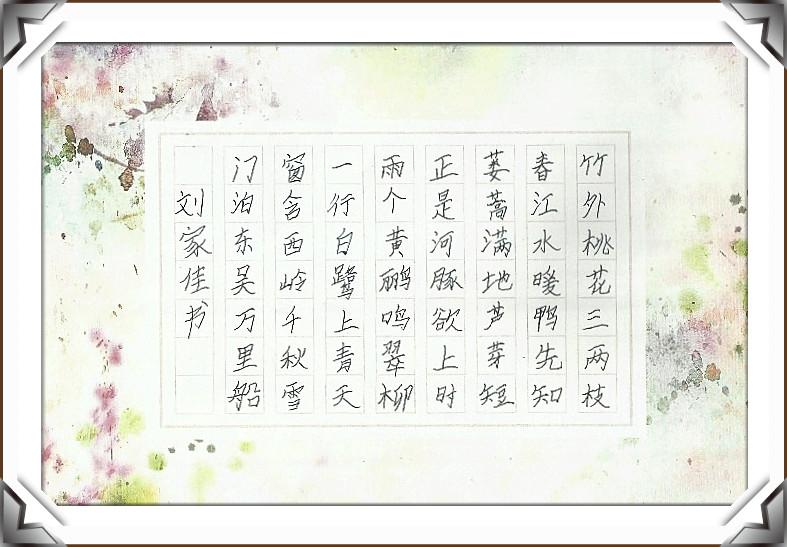 竹外桃花三两枝
春江水暖鸭先知
蒌蒿满地芦芽短
正是河豚欲上时
雨个黄鹂鸣翠柳
一行白鹭上青天
窗含西岭千秋雪
门泊东吴万里船
刘家佳书